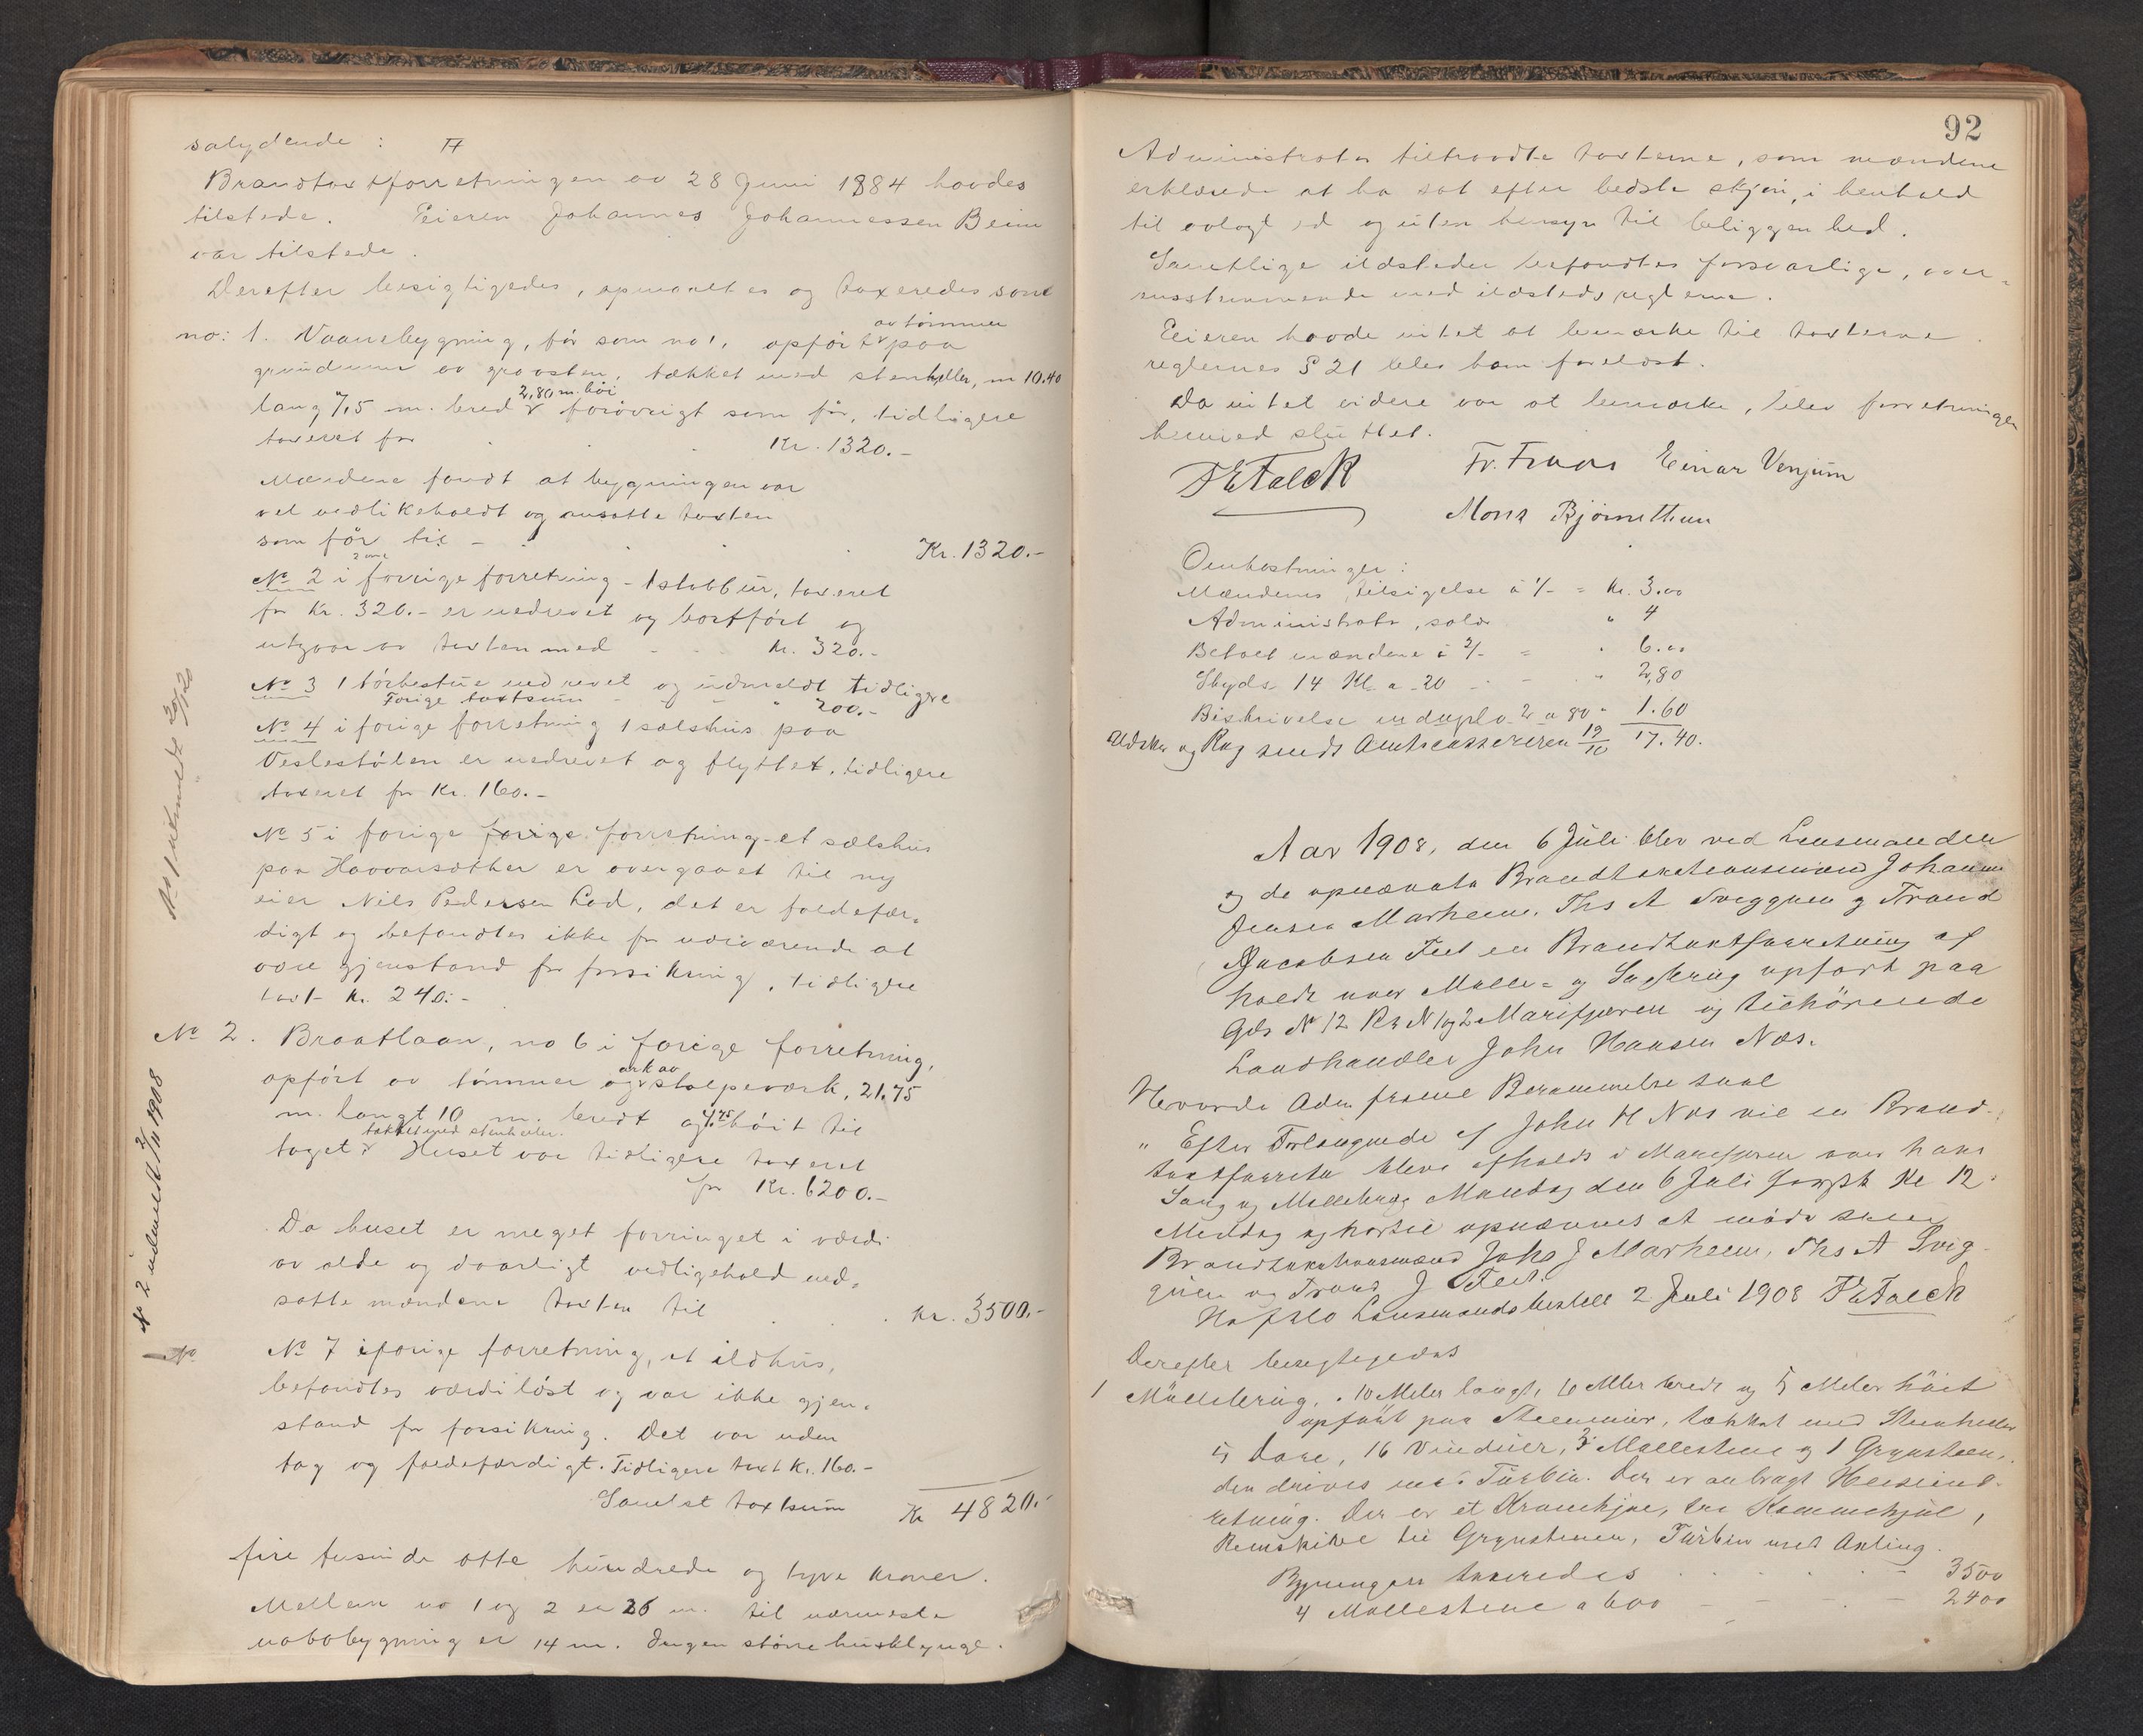 salydende :
Brandtaxtforretningen av 28 Juni 1884 havdes
tilstede. Eieren Johannes Johannessen Beim
var tilstede.
Derefter besigtigedes, opmaaltes og taxeredes som
no: 1. Vaaningsbygning, før som no 1, opført av tømmer paa
grundmur av graasten, tækket med stenheller, m 10.40
lang 7,5 m. bred 2,80 m. høi forøvrigt som før, tidligere
taxeret for Kr. 1320.-
Mændene fandt at bygningen var
vel vedlikeholdt og ansatte taxten
som før til - Kr. 1320.-
No 2 i forrige forretning - 1 stabbur, taxeret
for Kr. 320.- er nedrevet og bortført og
utgaar av taxten med - - Kr. 320.-
No 3 1 tørkestue nedrevet og udmeldt tidligere
Forige taxtsum - - " 200.-
No 4 i forige forretning 1 sælshus paa
Veslestølen er nedrevet og flyttet, tidligere
taxeret for Kr. 160.-
No 5 i forige forige forretning - et sælshus
paa Havvarsæther er overgaaet til ny
eier Nils Pedersen Lad, det er faldefær-
digt og befandtes ikke for nærværende at
være gjenstand for forsikring, tidligere
taxt Kr. 240.-
No 2. Braatlaan, no 6 i forige forretning,
opført av tømmer og ark av stolpeværk, 21.75
m. langt 10 m. bredt og 4.75 høit til
taget tækket med stenheller. Huset var tidligere taxeret
for Kr. 6200.-
Da huset er meget forringet i værdi
av ælde og daarligt vedligehold ned-
satte mændene taxten til Kr. 3500.-
No 7 i forige forretning, et ildhus,
befandtes værdiløst og var ikke gjen-
stand for forsikring. Det var uden
tag og faldefærdigt. Tidligere taxt Kr. 160.-
Samlet taxtsum Kr 4820.-
fire tusinde otte hundrede og tyve kroner.
Mellem no 1 og 2 er 26 m. til nærmeste
nabobygning er 14 m. Ingen større husklynge.
No 1 udmeldt 30/3 20
N 2 udmeldt 2/11 1908
No
92
Administrator tiltraadte taxterne, som mændene
erklærede at ha sat efter bedste skjøn, i henhold
til avlagt ed og uten hensyn til beliggenhed.
Samtlige ildsteder befandtes forsvarlige, over-
ensstemmende med ildstedsreglerne.
Eieren havde intet at bemærke til taxterne.
reglernes § 21 blev ham forelæst.
Da intet videre var at bemærke, blev forretningen
hermed sluttet.
Falck Fr. Einar Venjum
Mons Bjørnethun
Omkostninger :
Mændenes tilsigelse à 1/- = Kr. 3.00
Administrator, salær " 4
Betalt mændene à 2/- = " 6.00
Skyds 14 Kl. a 20 - - " 2,80
Beskrivelse in duplo 2 a 80 " 1.60
Udskr og Reg sendt Amtscassereren 19/10 17.40.
Aar 1908, den 6 Juli blev ved Lensmanden
og de opnævnte Brandtakstionsmænd Johannes
Jensen Marheim, Ths A Svegguen og Trond
Jacobsen Feet en Brandtaxtforretning af
holdt over Mølle- og Sagbrug opført paa
Gds No 12 Br N 1 og 2 Marifjæren og tilhørende
Landhandler John Hansen Næs.
Hvorda Adm freml Berammelse saal
" Efter Forlangende af John H Næs vil en Brand-
taxtforretn blive afholdt i Marifjæren over hans
Saug og Møllebrug Mandag den 6 Juli førstk Kl 12
Middag og hertil opnævnes at møde som
Brandtakstionsmænd Johs J Marheim, Ths A Sveg-
guen og Trond J Feet.
Hafslo Lensmandsbestell 2 Juli 1908 Falck
Derefter besigtigedes
1 Møllebrug, 10 Meter langt, 10 Meter bredt og 5 Meter høit
opført paa Steenmur, tækket med Steenheller
5 Døre, 16 Vinduer, 3 Møllestene og 1 Grynsteen,
den drives med Turbin. Der er anbragt Heiseind-
retning. Der er et Kronhjul, tre Kammehjul,
Remskive til Grynstenen, Turbin med Axling.
Bygningen taxeredes - - - 3500
4 Møllestene a 600 - - - 2400